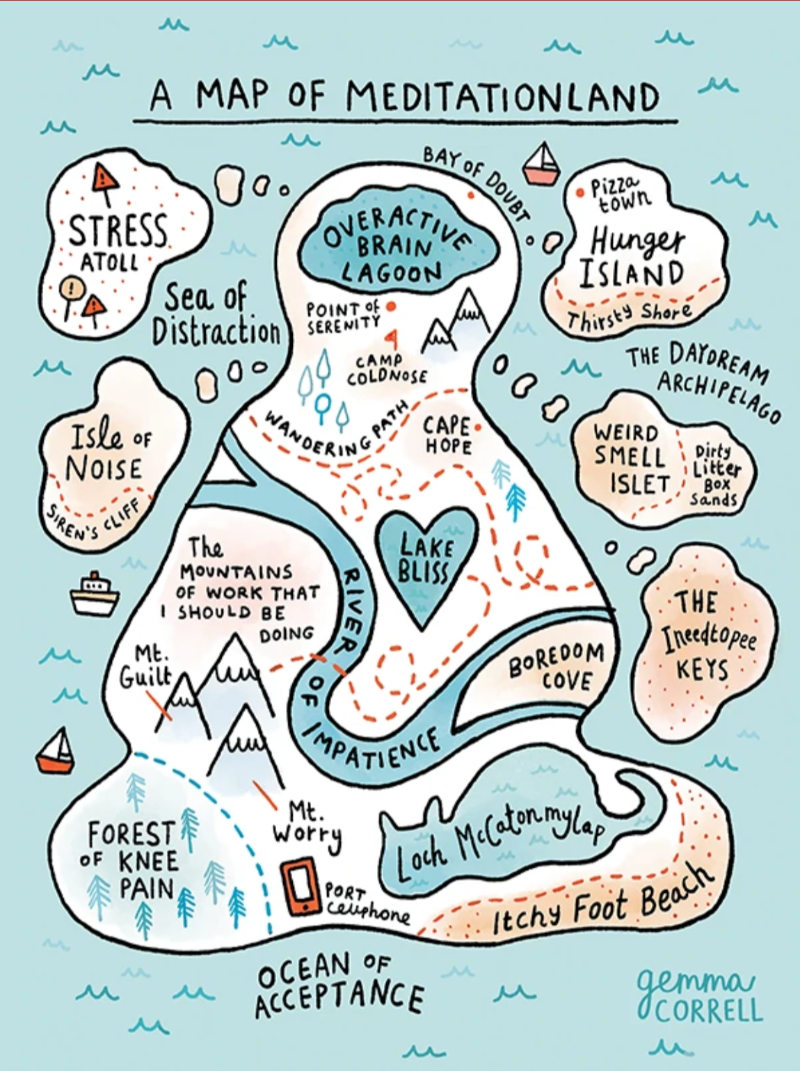 A MAP OF MEDITATIONLAND
BAY OF DOUBT
STRESS
ATOLL
!
Sea of
Distraction
OVERACTIVE
BRAIN
LAGOON
Pizza
town
Hunger
ISLAND
Thirsty Shore
POINT OF
SERENITY
CAMP
COLDNOSE
THE DAYDREAM
ARCHIPELAGO
Isle OF
NOISE
SIREN'S CLIFF
WANDERING PATH
CAPE
HOPE
WEIRD
SMELL
ISLET
Dirty
Litter
Box
Sands
The
MOUNTAINS
OF WORK THAT
I SHOULD BE
DOING
LAKE
BLISS
RIVER OF IMPATIENCE
THE
Ineedtopee
KEYS
Mt.
Guilt
BOREDOM
COVE
Mt.
Worry
FOREST
OF KNEE
PAIN
Loch McCatonmylap
PORT
Cellphone
Itchy Foot Beach
OCEAN OF
ACCEPTANCE
gemma
CORRELL